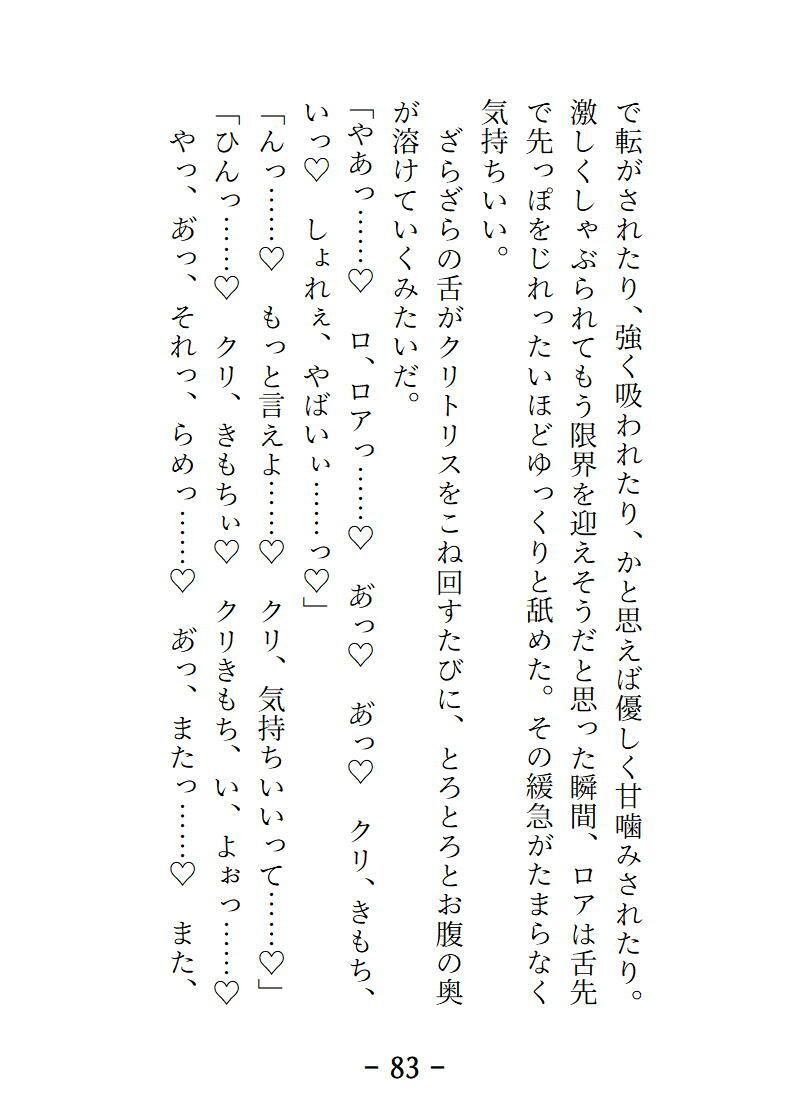 で転がされたり、強く吸われたり、かと思えば優しく甘噛みされたり。
激しくしゃぶられてもう限界を迎えそうだと思った瞬間、ロアは舌先
で先っぽをじれったいほどゆっくりと舐めた。その緩急がたまらなく
気持ちいい。
　ざらざらの舌がクリトリスをこね回すたびに、とろとろとお腹の奥
が溶けていくみたいだ。
「やあっ……♡　ロ、ロアっ……♡　あ゙っ♡　あ゙っ♡　クリ、きもち、
いっ♡　しょれぇ、やばいぃ……っ♡」
「んっ……♡　もっと言えよ……♡　クリ、気持ちいいって……♡」
「ひんっ……♡　クリ、きもちぃ♡　クリきもち、い、よぉっ……♡
やっ、あ゙っ、それっ、らめっ……♡　あ゙っ、またっ……♡　また、
- 83 -